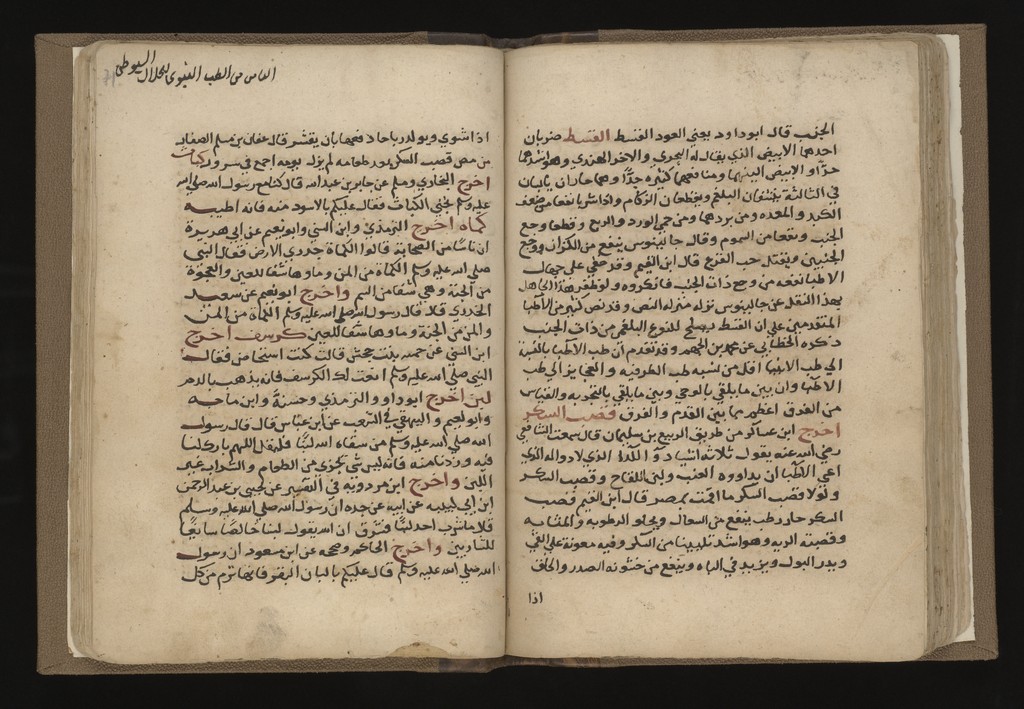 الجنب قال ابوداود يعني العود القسط القسط ضربان
احدهما الابيض الذي يقال له البحري والاخر الهندي وهو اشدهما
حرا والابيض الينهما ومنافعهما كثيرة جدا وهما حاران يابسان
في الثالثة ينشفان البلغم ويقطعان الزكام واذا شربا نفعا من ضعف
الكبد والمعده ومن بردهما ومن حمى الورد والربع وقطعا وجع
الجنب ونفعا من السموم وقال جالينوس ينفع من الكزاز ووجع
الجنبين ويقتل حب القرع قال ابن القيم وقد خفي على جهال
الاطبا نفعه من وجع ذات الجنب فانكروه ولو ظفر هذا الجاهل
بهذا النقل عن جالينوس نزله منزله النص وقد نص كثير من الاطبا
المتقدمين على ان القسط يصلح للنوع البلغمي من ذات الجنب
ذكره الخطابي عن محمد بن الجهم وقد تقدم ان طب الاطبا بالنسبة
الي طب الانبيا اقل من نسبه طب الطرقيه والعجايز الي طب
الاطبا وان بين ما يلقي بالوحي وبين ما يلقي بالتجربه والقياس
من الفرق اعظم مما بين القدم والفرق قصب السكر
اخرج ابن عساكر من طريق الربيع بن سليمان قال سمعت الشافعي
رضي الله عنه يقول ثلاثه اشيا دوا للداء الذي لا دوا له الذي
اعي الاطبا ان يداووه العنب ولبن اللقاح وقصب السكر
ولولا قصب السكر ما اقمت بمصر قال ابن القيم قصب
السكر حار رطب ينفع من السعال ويجلو الرطوبه والمثانه
وقصبه الريه وهو اشد تليينا من السكر وفيه معونة على القي
ويدر البول ويزيد في الباه وينفع من خشونه الصدر والحلق
اذا
الثامن من الطب النبوي للجلال السيوطي
اذا شوي ويولد رياحا دفعها بان يقشر قال عفان بن مسلم الصفار
من مص قصب السكر بعد طعامه لم يزل يومه اجمع في سرور كباث
اخرج البخاري ومسلم عن جابر بن عبدالله قال كنا مع رسول الله صلي الله
عليه وسلم نجني الكباث فقال عليكم بالاسود منه فانه اطيبه
كماه اخرج الترمذي وابن السني وابو نعيم عن ابي هريرة
ان ناسا من الصحابة قالوا الكماة جدري الارض فقال النبي
صلي الله عليه وسلم الكماة من المن وماوها شفا للعين والعجوة
من الجنة وهي شفا من السم واخرج ابو نعيم عن سعيد
الخدري قال قال رسول الله صلي الله عليه وسلم الكماة من المن
والمن من الجنة وماوها شفا للعين كرسف اخرج
ابن السني عن حمنه بنت جحش قالت كنت استحاض فقال
النبي صلي الله عليه وسلم انعت لك الكرسف فانه يذهب بالدم
لبن اخرج ابوداود والترمذي وحسنه وابن ماجه
وابو نعيم والبيهقي في الشعب عن ابن عباس قال قال رسول
الله صلي الله عليه وسلم من سقاه الله لبنا فليقل اللهم بارك لنا
فيه وزدنا منه فانه ليس شي يجزي من الطعام والشراب غير
اللبن واخرج ابن مردويه في التفسير عن يحيى بن عبد الرحمن
ابن ابي لبيبه عن ابيه عن جده ان رسول الله صلي الله عليه وسلم
قال ما شرب احد لبنا فشرق ان الله يقول لبنا خالصا سايغا
للشاربين واخرج الحاكم وصححه عن ابن مسعود ان رسول
الله صلي الله عليه وسلم قال عليكم بالبان البقر فانها ترم من كل